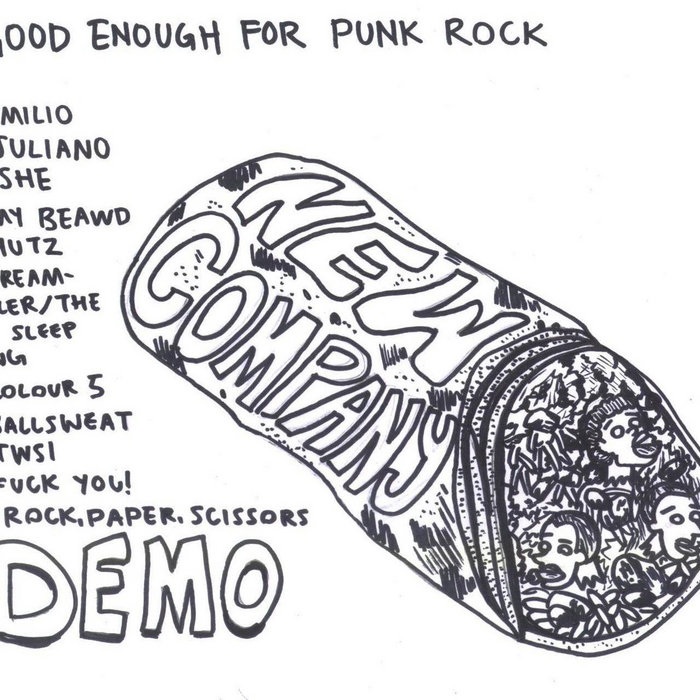 GOOD ENOUGH FOR PUNK ROCK
MILIO
JULIANO
SHE
AY BEAWD
HUTZ
REAM-
LER/THE
SLEEP
NG
COLOUR 5
BALLSWEAT
TWSI
FUCK YOU!
ROCK, PAPER, SCISSORS
DEMO
NEW
COMPANY